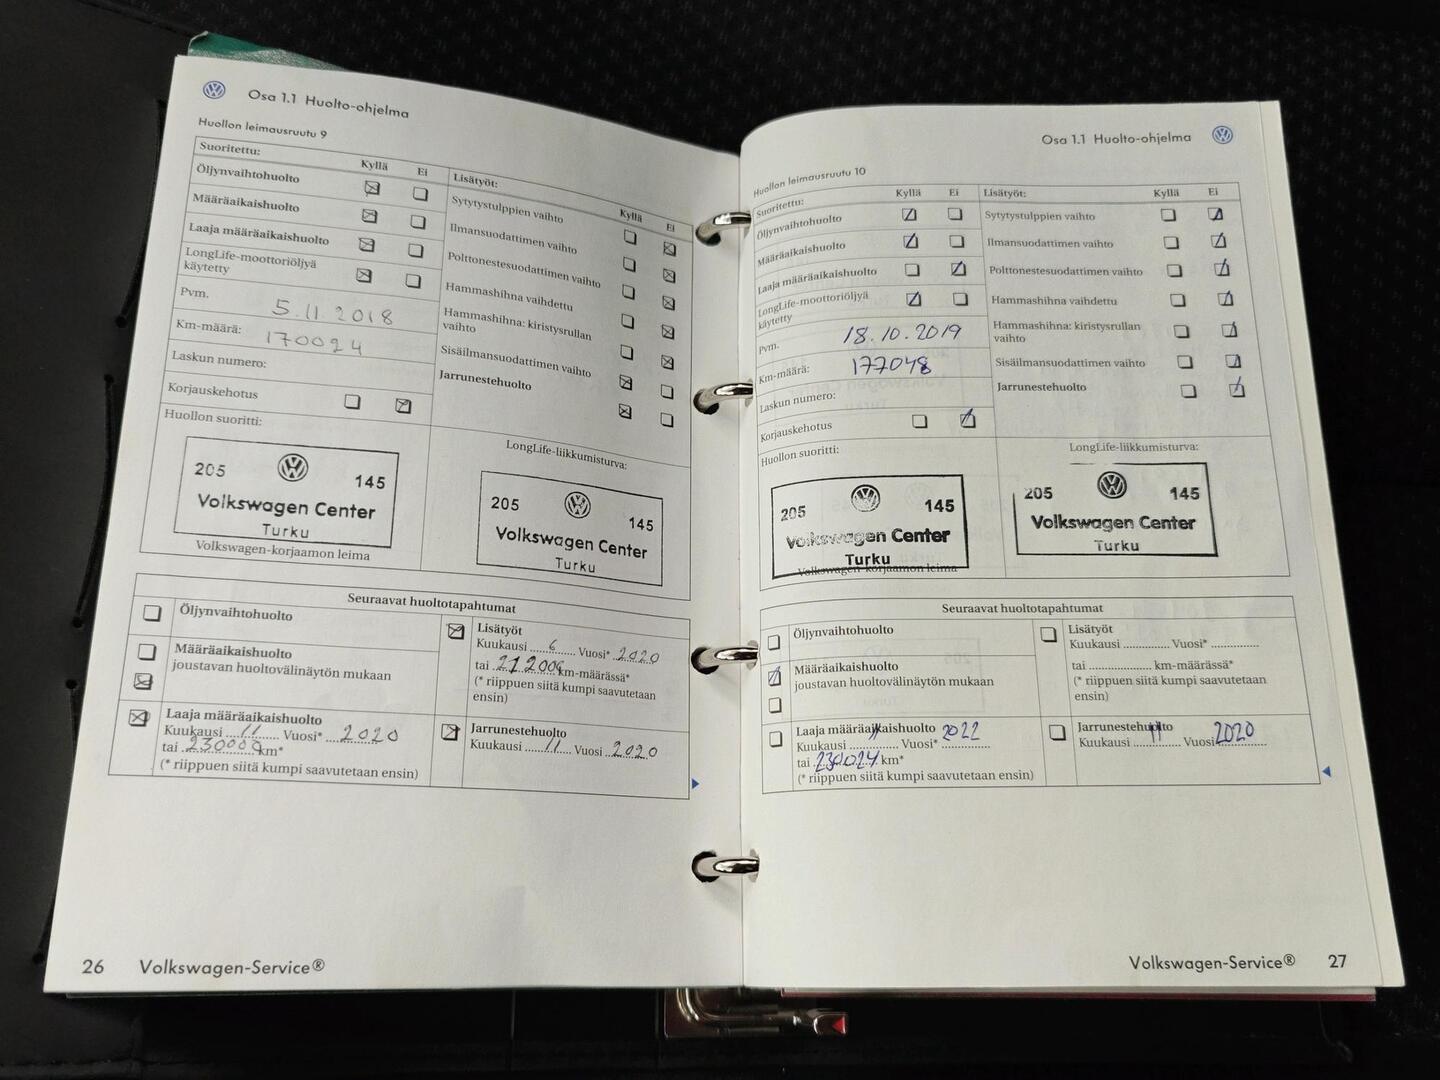 Osa 1.1 Huolto-ohjelma
Huollon leimausruutu 9
Suoritettu: Kyllä Ei
Öljynvaihtohuolto
Määräaikaishuolto
Laaja määräaikaishuolto
LongLife-moottoriöljyä
käytetty
Pvm. 5.11.2018
Km-määrä: 170024
Laskun numero:
Korjauskehotus
Huollon suoritti:
205 145
Volkswagen Center
Turku
Volkswagen-korjaamon leima
Lisätyöt: Kyllä Ei
Sytytystulppien vaihto
Ilmansuodattimen vaihto
Polttonestesuodattimen vaihto
Hammashihna vaihdettu
Hammashihna: kiristysrullan
vaihto
Sisäilmansuodattimen vaihto
Jarrunestehuolto
LongLife-liikkumisturva:
205 145
Volkswagen Center
Turku
Seuraavat huoltotapahtumat
Öljynvaihtohuolto
Määräaikaishuolto
joustavan huoltovälinäytön mukaan
Laaja määräaikaishuolto
Kuukausi 11 Vuosi* 2020
tai 230000 km*
(* riippuen siitä kumpi saavutetaan ensin)
Lisätyöt
Kuukausi 6 Vuosi* 2020
tai km-määrässä*
(* riippuen siitä kumpi saavutetaan
ensin)
Jarrunestehuolto
Kuukausi 11 Vuosi 2020
26 Volkswagen-Service®
Osa 1.1 Huolto-ohjelma
Huollon leimausruutu 10
Suoritettu: Kyllä Ei
Öljynvaihtohuolto
Määräaikaishuolto
Laaja määräaikaishuolto
LongLife-moottoriöljyä
käytetty
Pvm. 18.10.2019
Km-määrä: 177048
Laskun numero:
Korjauskehotus
Huollon suoritti:
205 145
Volkswagen Center
Turku
Volkswagen-korjaamon leima
Lisätyöt: Kyllä Ei
Sytytystulppien vaihto
Ilmansuodattimen vaihto
Polttonestesuodattimen vaihto
Hammashihna vaihdettu
Hammashihna: kiristysrullan
vaihto
Sisäilmansuodattimen vaihto
Jarrunestehuolto
LongLife-liikkumisturva:
205 145
Volkswagen Center
Turku
Seuraavat huoltotapahtumat
Öljynvaihtohuolto
Määräaikaishuolto
joustavan huoltovälinäytön mukaan
Laaja määräaikaishuolto
Kuukausi 11 Vuosi* 2022
tai 230024 km*
(* riippuen siitä kumpi saavutetaan ensin)
Lisätyöt
Kuukausi Vuosi*
tai km-määrässä*
(* riippuen siitä kumpi saavutetaan
ensin)
Jarrunestehuolto
Kuukausi 11 Vuosi 2020
Volkswagen-Service® 27